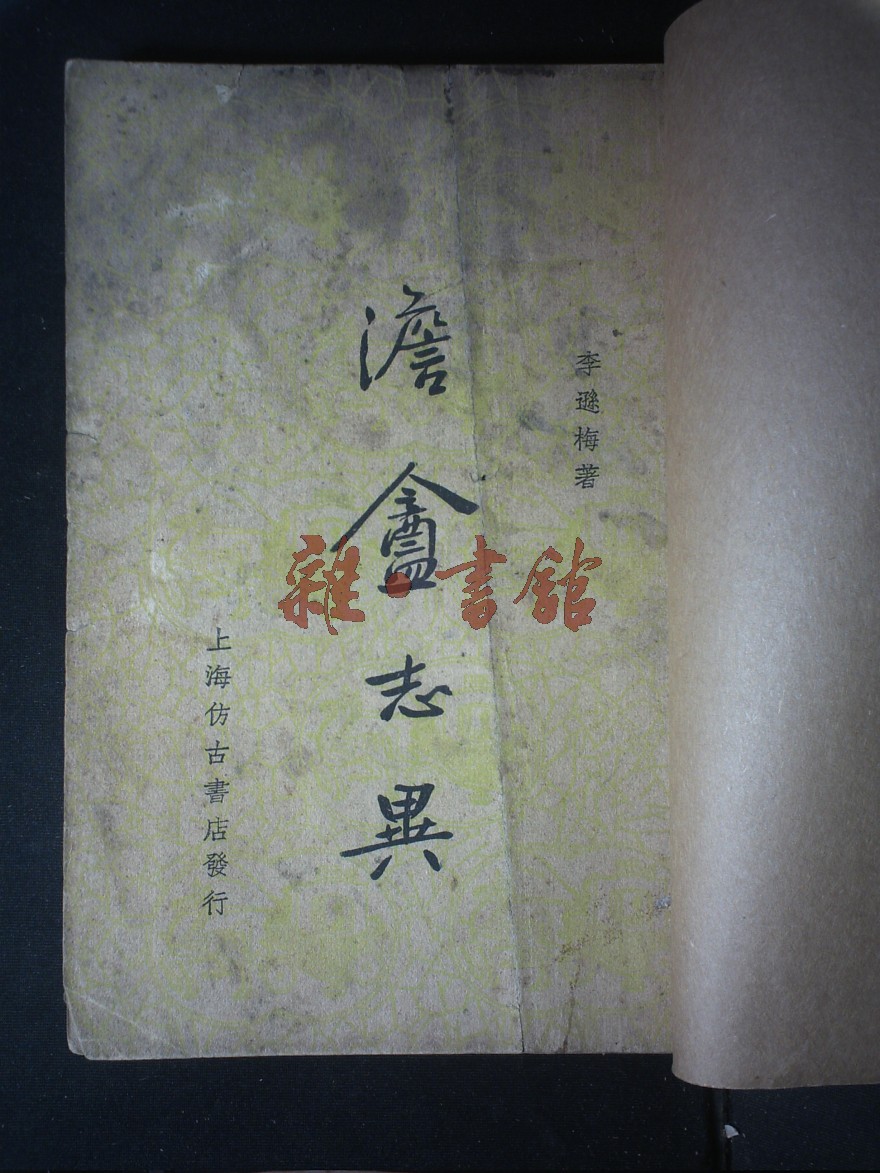 李遜梅著
澹盦志異
上海仿古書店發行
雜·書館